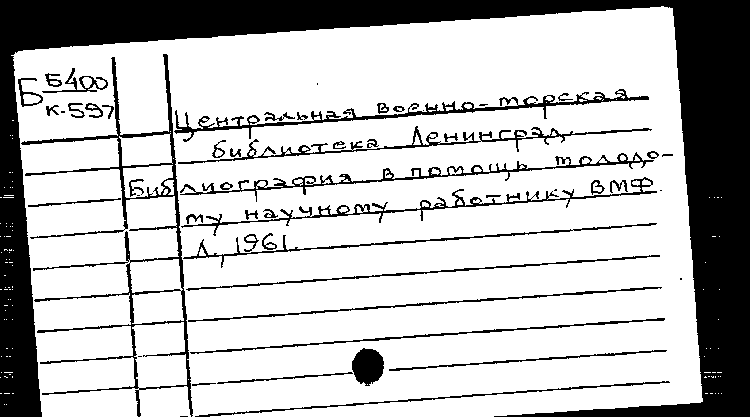 Б 5400
к-597
Центральная военно-морская
библиотека. Ленинград.
Библиография в помощь молодо-
му научному работнику ВМФ.
Л., 1961.